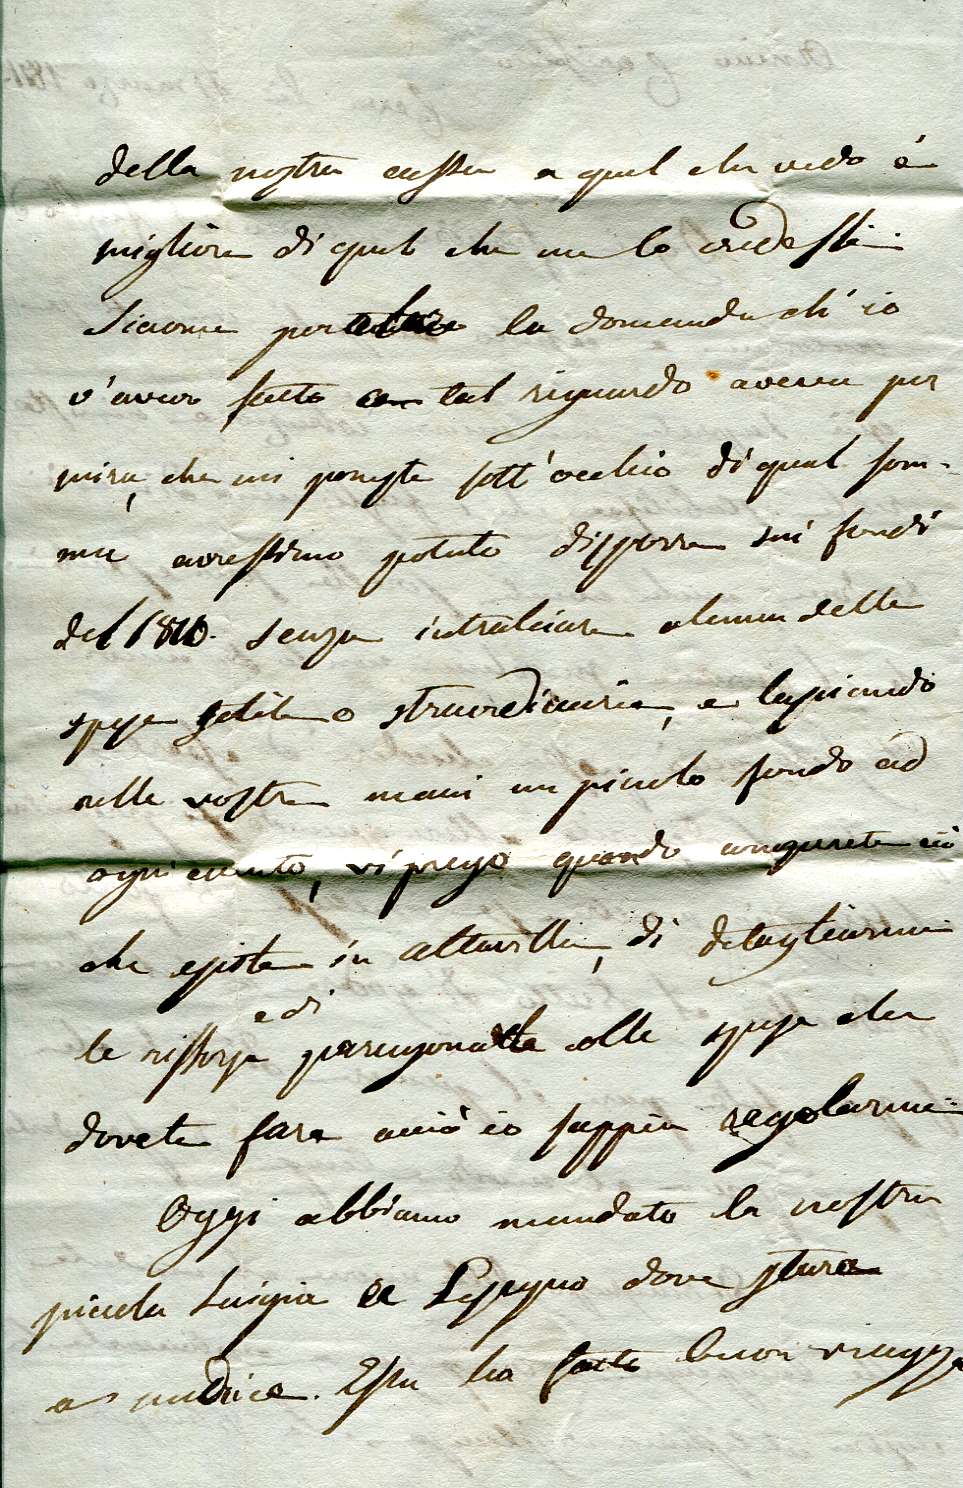 della nostra cassa a quel che vedo é
migliore di quel che me lo credessi.
Siccome per altro la domanda ch'io
v'avevo fatto a tal riguardo aveva per
mira, che mi poneste sott'occhio di qual som-
ma avressimo potuto disporre sui fondi
del 1810. senza intralciare alcuna delle
spese solite o straordinarie, e lasciando
nelle vostre mani un piccolo fondo ad
ogni evento, vi prego quando congurete ciò
che esiste in Altavilla, di detagliarmi
e di
le risorse paragonate colle spese che
dovete fare acciò io sappia regolarmi.
Oggi abbiamo mandato la nostra
piccola Luigia a dove stara
a nudrice. Essa ha fatto buon viaggo